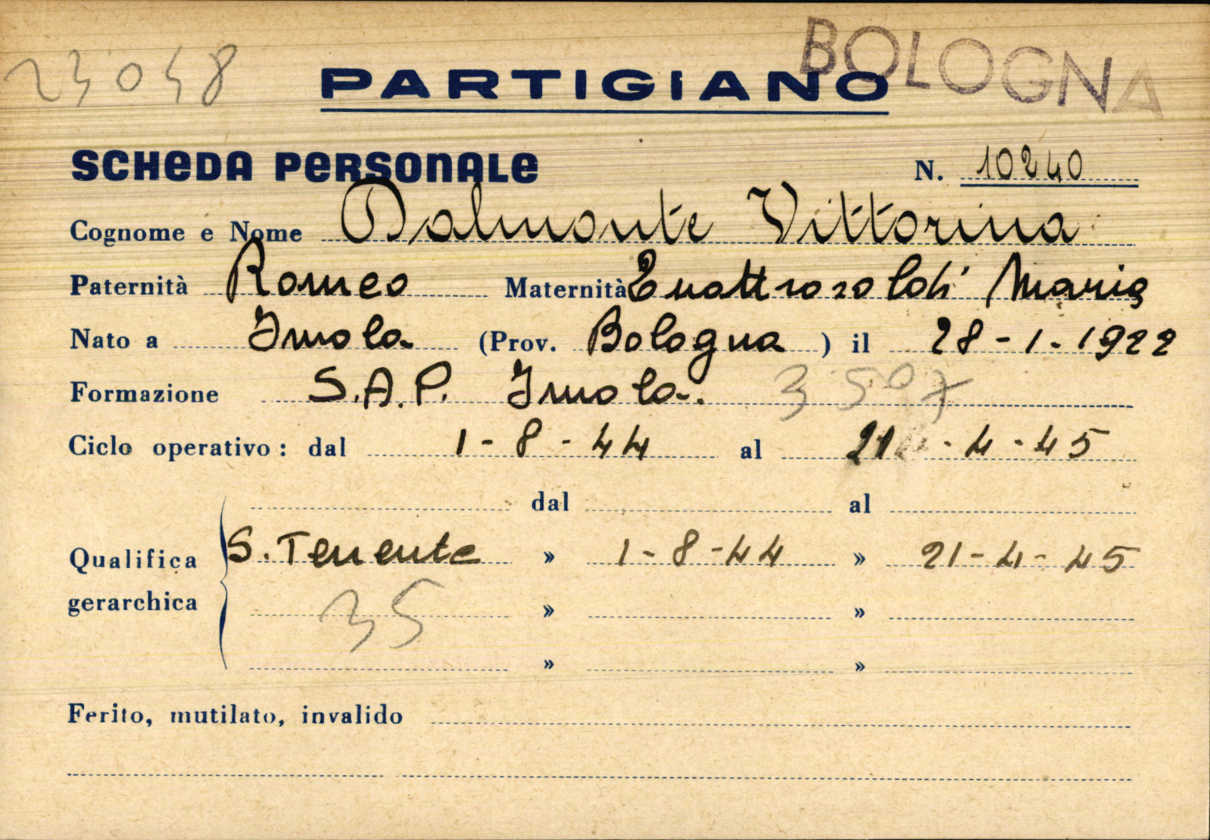 23048
BOLOGNA
PARTIGIANO
SCHEDA PERSONALE N. 10240
Cognome e Nome Dalmonte Vittorina
Paternità Romeo Maternità Quattrosoldi Maria
Nato a Imola (Prov. Bologna ) il 28-1-1922
Formazione S.A.P. Imola. 3507
Ciclo operativo: dal 1-8-44 al 21-4-45
dal al
Qualifica gerarchica S. Tenente » 1-8-44 » 21-4-45
35 » »
» »
Ferito, mutilato, invalido